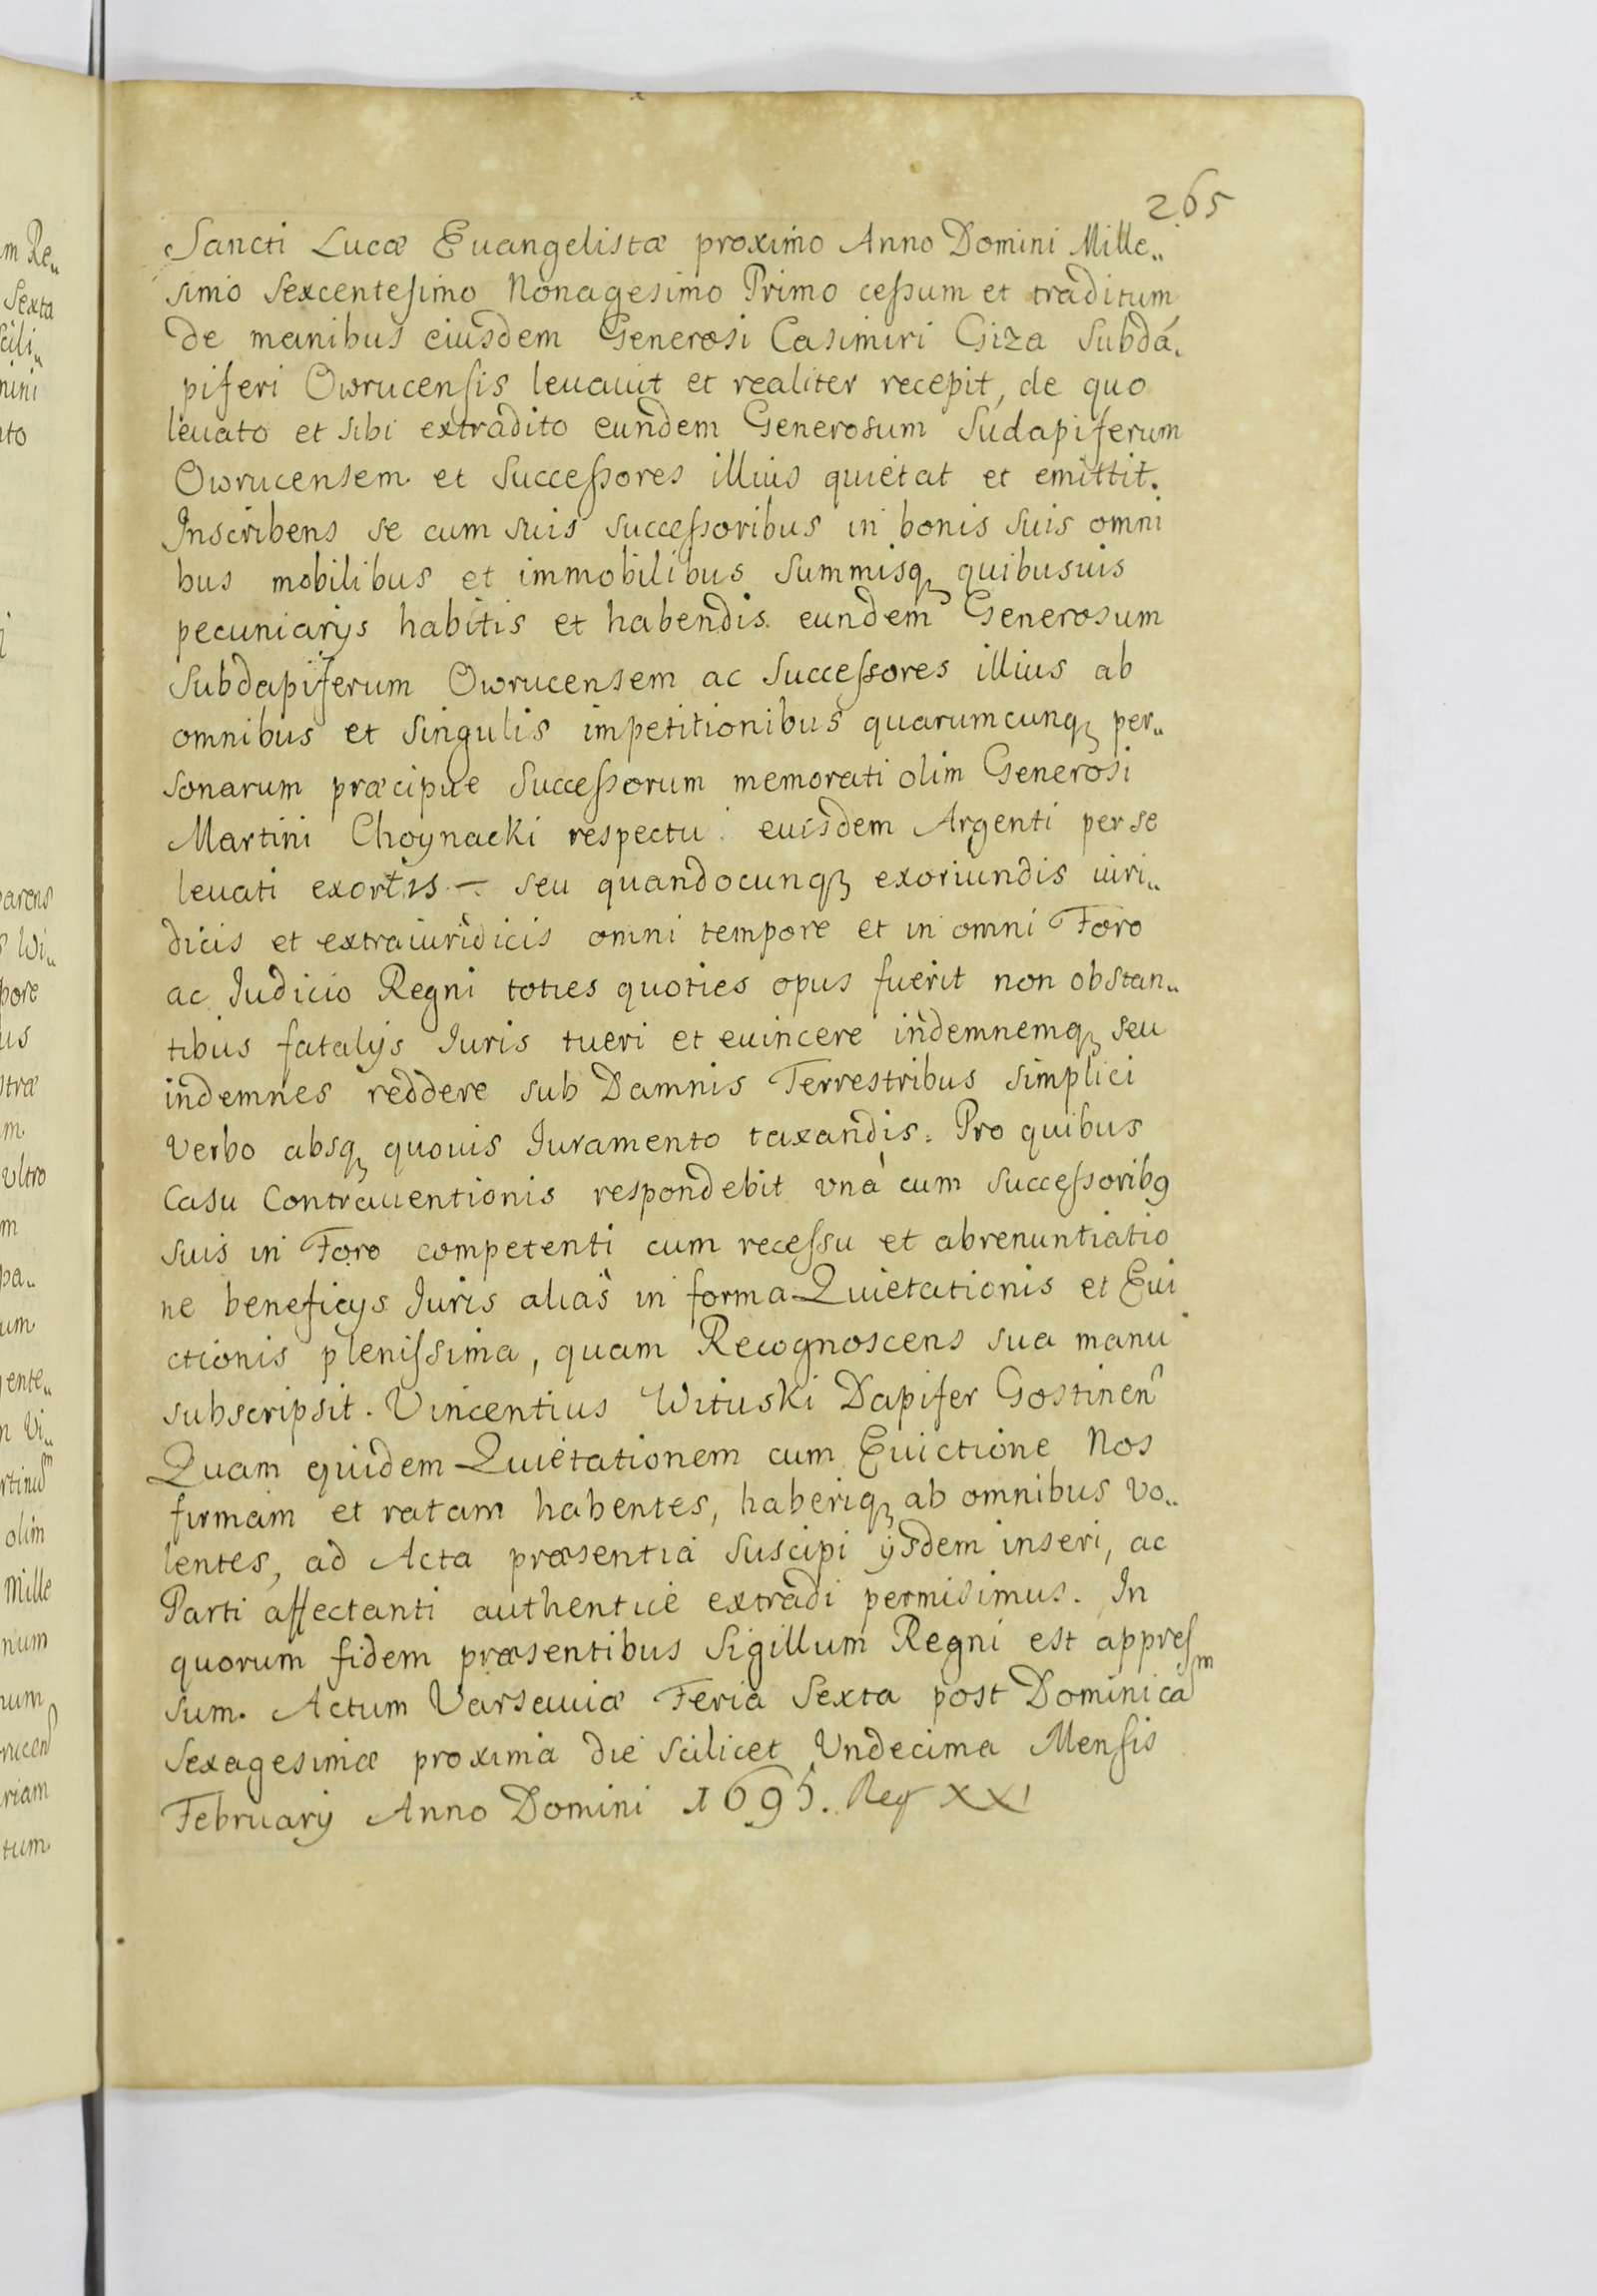 265
Sancti Lucæ Euangelistæ proximo Anno Domini Mille„
simo Sexcentesimo Nonagesimo Primo cessum et traditum
de manibus eiusdem Generosi Casimiri Giza Subda„
piferi Owrucensis leuauit et realiter recepit, de quo
leuato et sibi extradito eundem Generosum Sudapiferum
Owrucensem et Successores illius quietat et emittit.
Inscribens se cum suis successoribus in bonis suis omni
bus mobilibus et immobilibus summisq₃ quibusuis
pecuniarijs habitis et habendis eundem Generosum
Subdapiferum Owrucensem ac Successores illius ab
omnibus et singulis impetitionibus quarumcunq₃ per„
sonarum præcipue Successorum memorati olim Generosi
Martini Choynacki respectu euisdem Argenti per se
leuati exortis – seu quandocunq₃ exoriundis iuri„
dicis et extraiuridicis omni tempore et in omni Foro
ac Judicio Regni toties quoties opus fuerit non obstan„
tibus fatalijs Juris tueri et euincere indemnemq₃ seu
indemnes reddere sub Damnis Terrestribus simplici
verbo absq₃ quouis Juramento taxandis: Pro quibus
Casu Contrauentionis respondebit vnà cum successorib9
suis in Foro competenti cum recessu et abrenuntiatio
ne beneficijs Juris aliàs in forma Quietationis et Eui
ctionis plenissima, quam Recognoscens sua manu
subscripsit. Vincentius Wituski Dapifer Gostinen
Quam quidem Quietationem cum Euictione Nos
firmam et ratam habentes, haberiq₃ ab omnibus vo„
lentes, ad Acta præsentia suscipi ijsdem inseri, ac
Parti affectanti authenticè extradi permisimus. In
quorum fidem præsentibus Sigillum Regni est appres
sum. Actum Varsauiæ Feria Sexta post Dominicam
Sexagesimæ proxima die scilicet Vndecima Mensis
Februarij Anno Domini 1695. Reg XXI